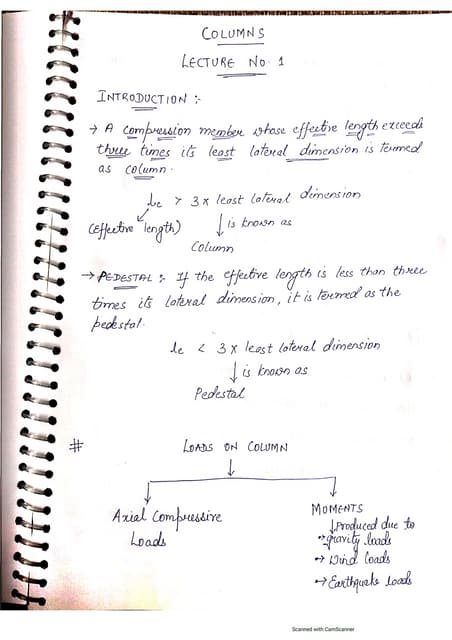 COLUMNS
LECTURE NO. 1
INTRODUCTION :-
→ A compression member whose effective length exceeds
three times its least lateral dimension is termed
as column.
le > 3 x least lateral dimension
(effective length) ↓ is known as
Column
→ PEDESTAL :- If the effective length is less than three
times its lateral dimension, it is termed as the
pedestal.
le < 3 x least lateral dimension
↓ is known as
Pedestal
# LOADS ON COLUMN
Axial Compressive
Loads
MOMENTS
↓ Produced due to
→ gravity loads
→ Wind loads
→ Earthquake loads
Scanned with CamScanner